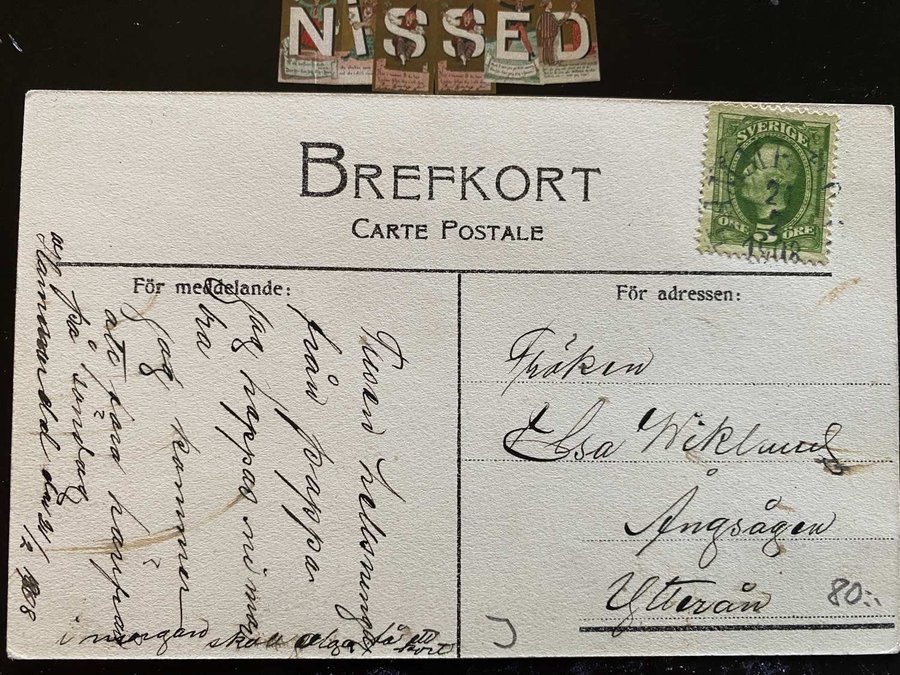 NiSSED
BREFKORT
CARTE POSTALE
SVERIGE
5
ÖRE
2
1908
För meddelande:
från pappa
Jag hoppas ni mår
bra
Jag kommer
att fara härifrån
på söndag
i morgon skall få ett
kort
För adressen:
Fröken
Elsa Wiklund
Ångsågen
Ytterån
80:-